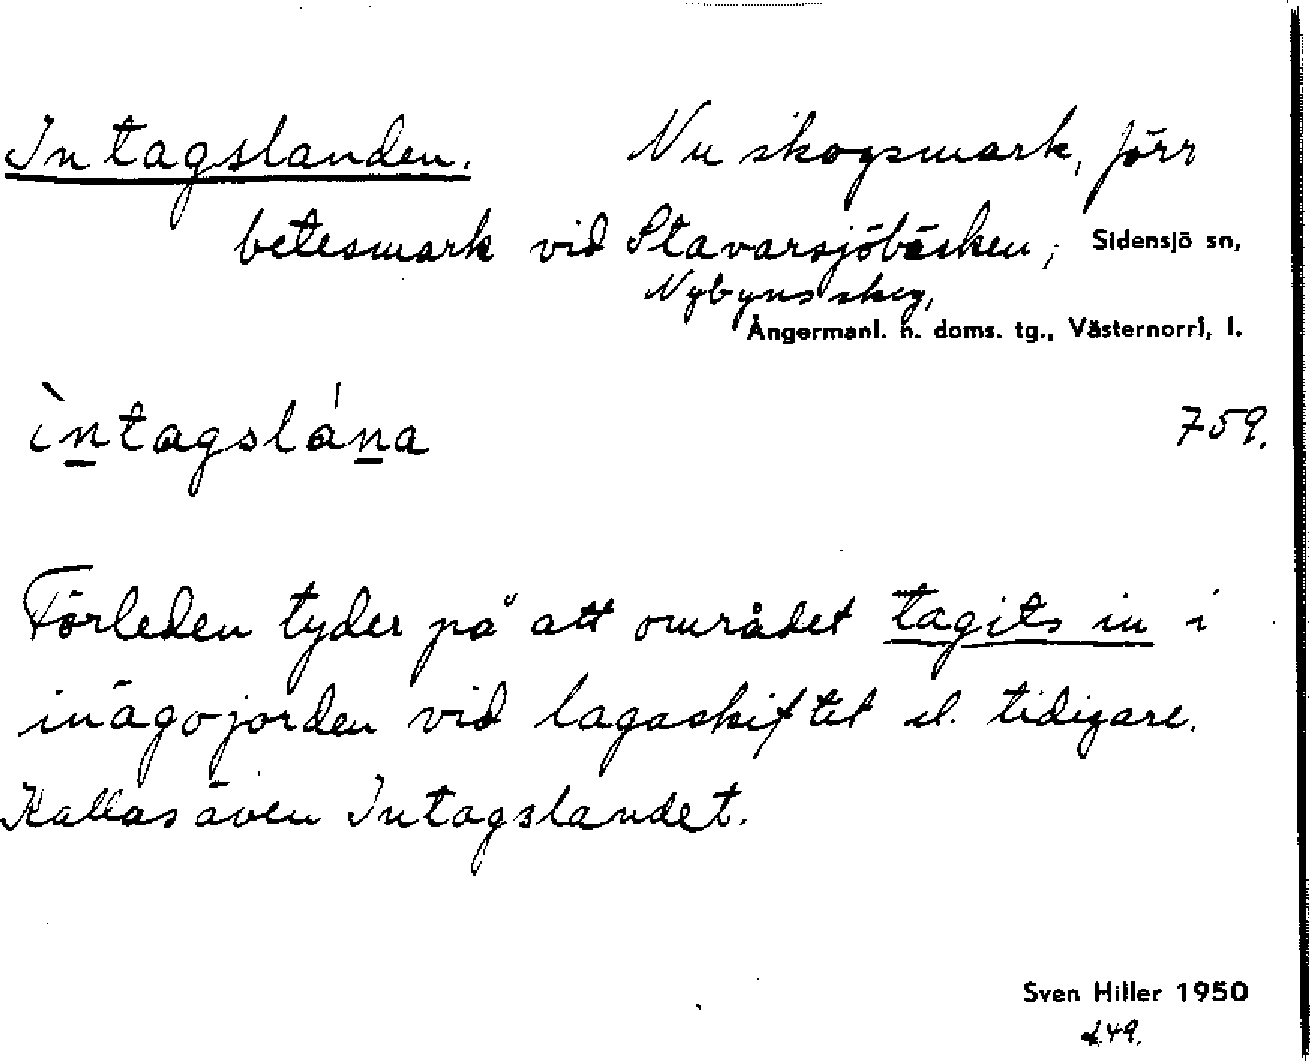 Intagslanden. Nu skogsmark, förr
betesmark vid Stavarsjöbäcken, Sidensjö sn,
Nybyns skog,
Ångermanl. n. doms. tg., Västernorrl, l.
ìntagslána 759.
Förleden tyder på att området tagits in i
inägojorden vid lagaskiftet el. tidigare.
Kallas även Intagslandet.
Sven Hiller 1950
d.49.